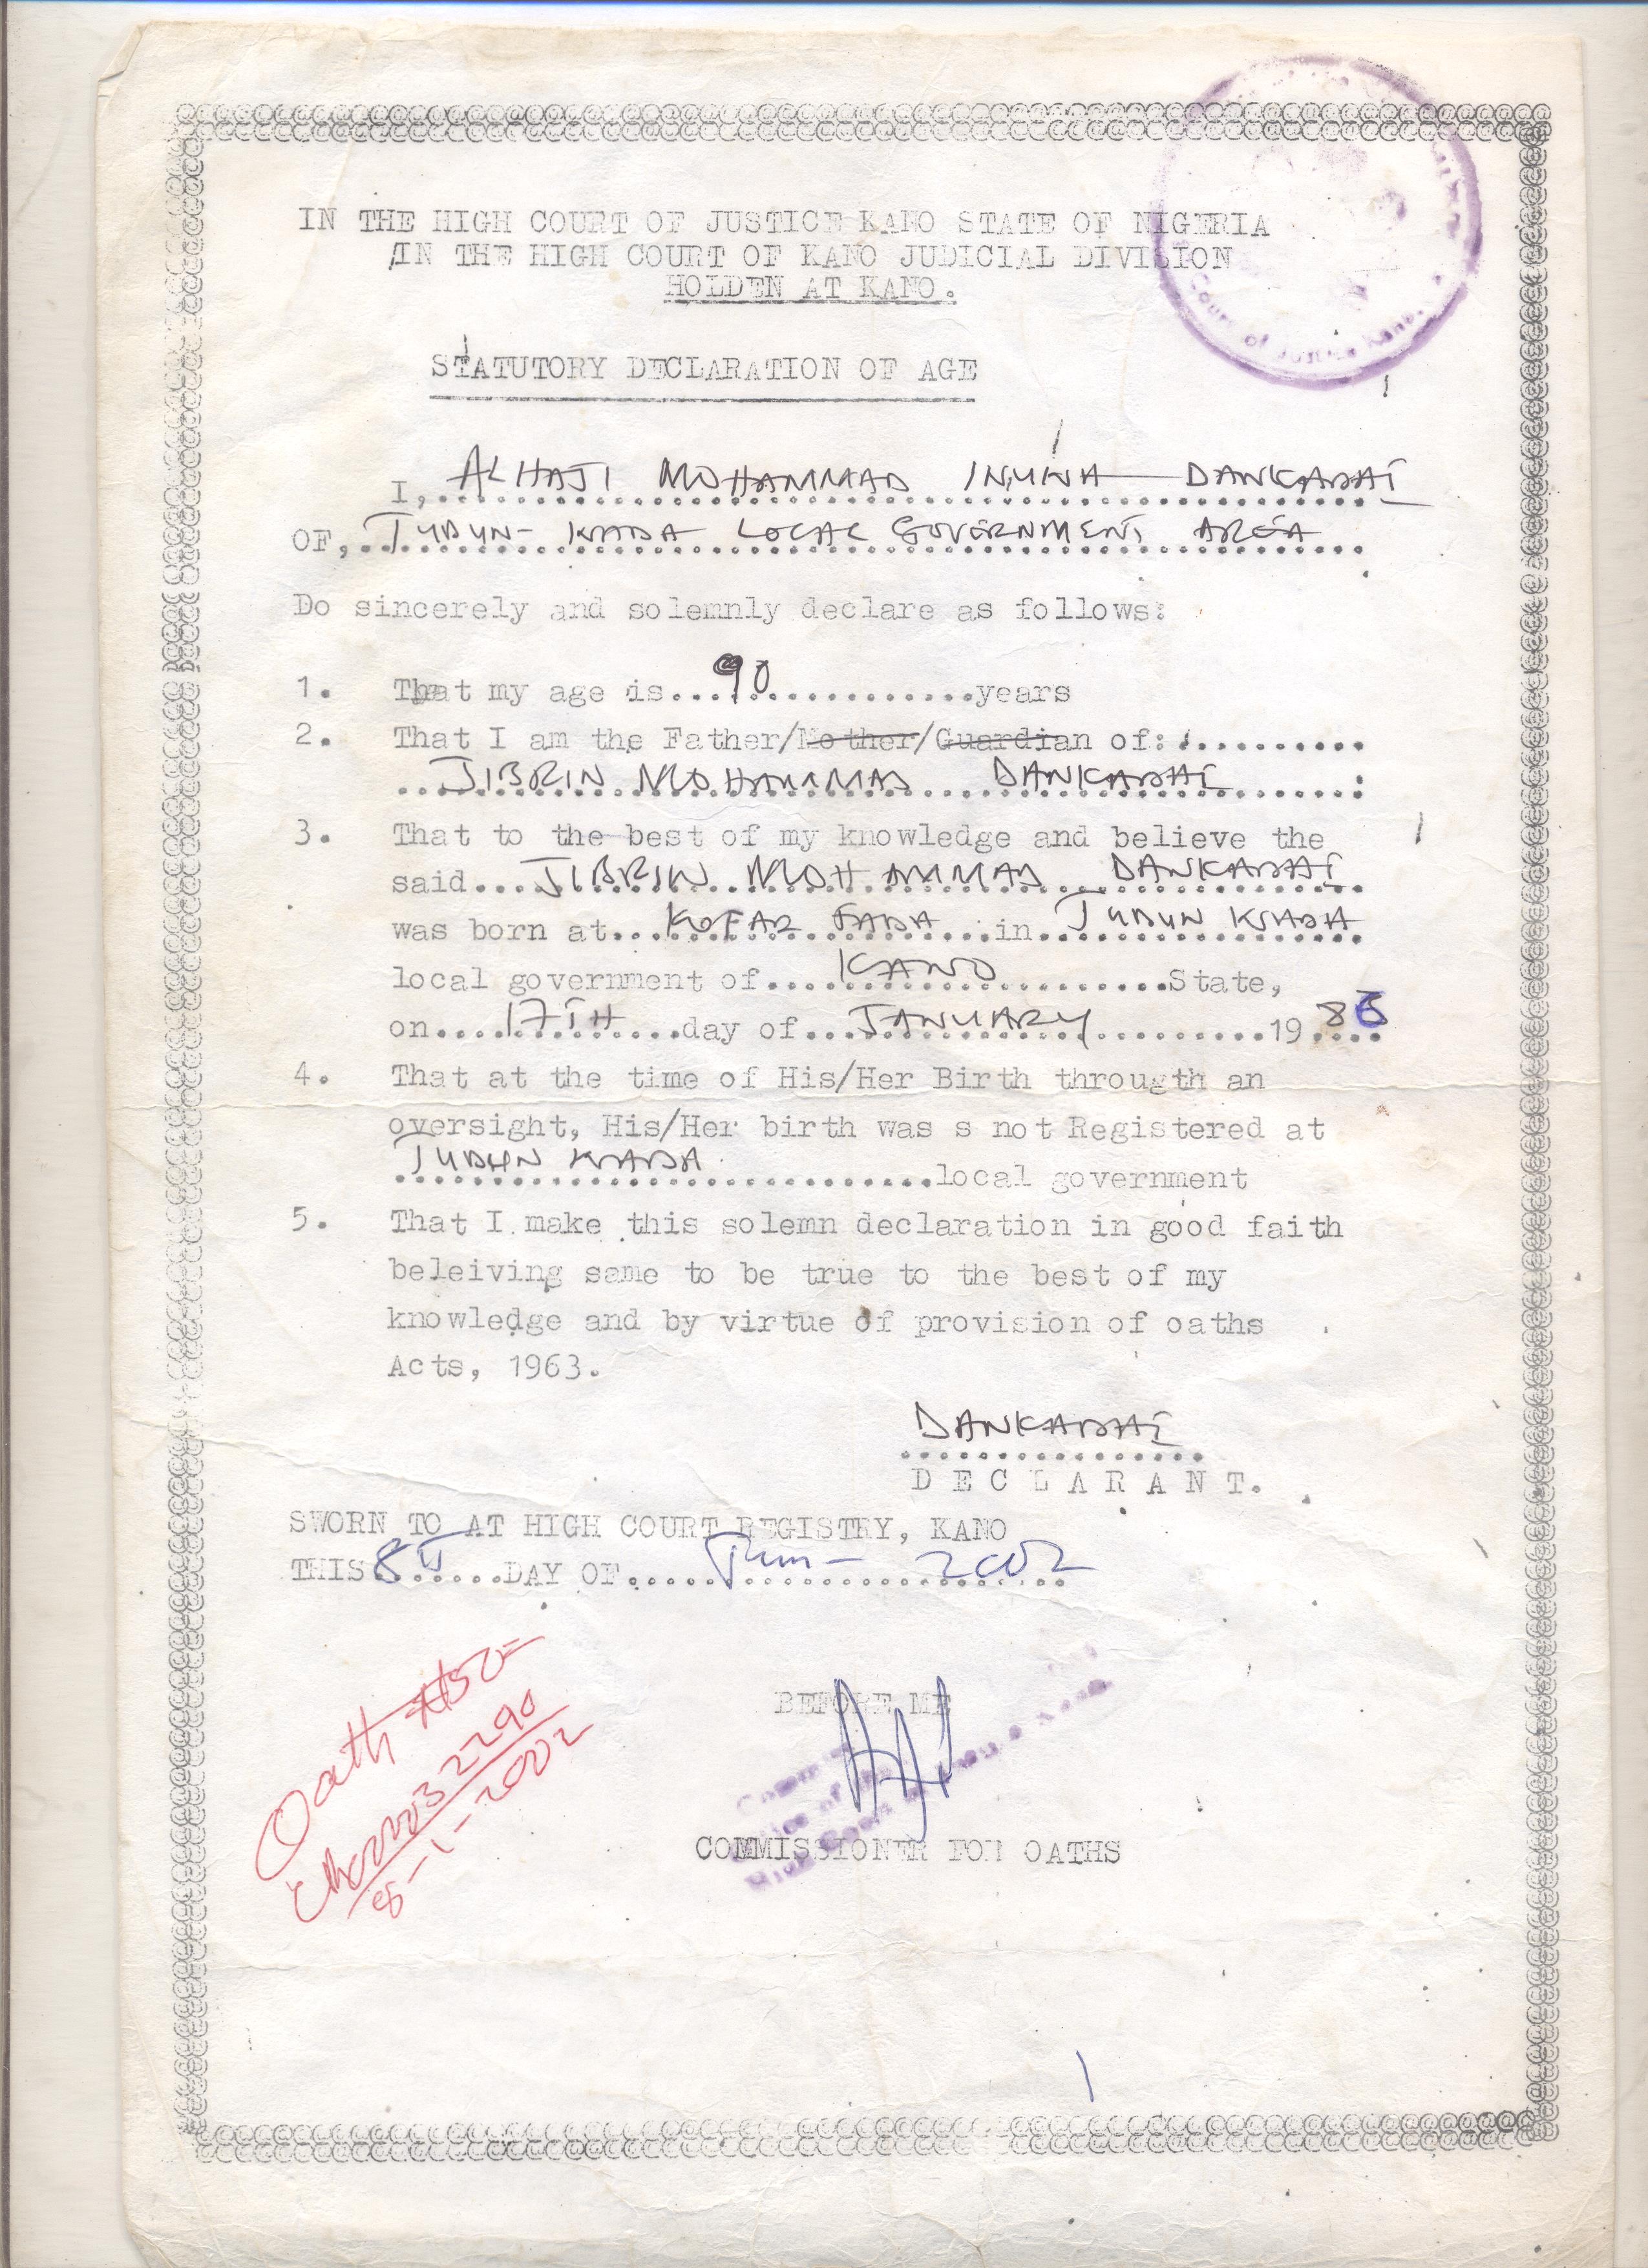 IN THE HIGH COURT OF JUSTICE KANO STATE OF NIGERIA
IN THE HIGH COURT OF KANO JUDICIAL DIVISION
HOLDEN AT KANO.
STATUTORY DECLARATION OF AGE
I, ALHAJI MOHAMMAD INUWA DANKADAI
OF, TUDUN-WADA LOCAL GOVERNMENT AREA
Do sincerely and solemnly declare as follows:
1. That my age is...90...............years
2. That I am the Father/Mother/Guardian of:..........
JIBRIN MOHAMMAD DANKADAI
3. That to the best of my knowledge and believe the
said... JIBRIN MOHAMMAD DANKADAI
was born at...KOFAR FADA...in..TUDUN WADA
local government of....KANO............State,
on....17TH....day of...JANUARY...........19 8
4. That at the time of His/Her Birth througth an
oversight, His/Her birth was s not Registered at
TUDUN WADA ...............local government
5. That I make this solemn declaration in good faith
beleiving same to be true to the best of my
knowledge and by virtue of provision of oaths
Acts, 1963.
DANKADAI
D E C L A R A N T.
SWORN TO AT HIGH COURT REGISTRY, KANO
THIS 8th.....DAY OF..... 2002
Oath
8-1-2002
BEFORE ME
COMMISSIONER FOR OATHS